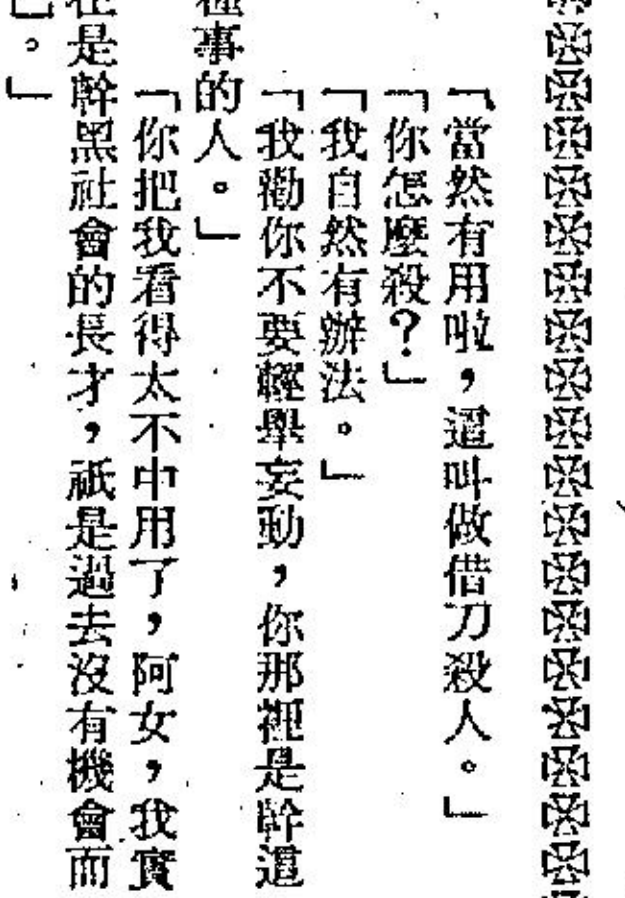 「當然有用啦，這叫做借刀殺人。」
「你怎麼殺？」
「我自然有辦法。」
「我勸你不要輕舉妄動，你那裡是幹這
種事的人。」
「你把我看得太不中用了，阿女，我實
在是幹黑社會的長才，祇是過去沒有機會而
已。」